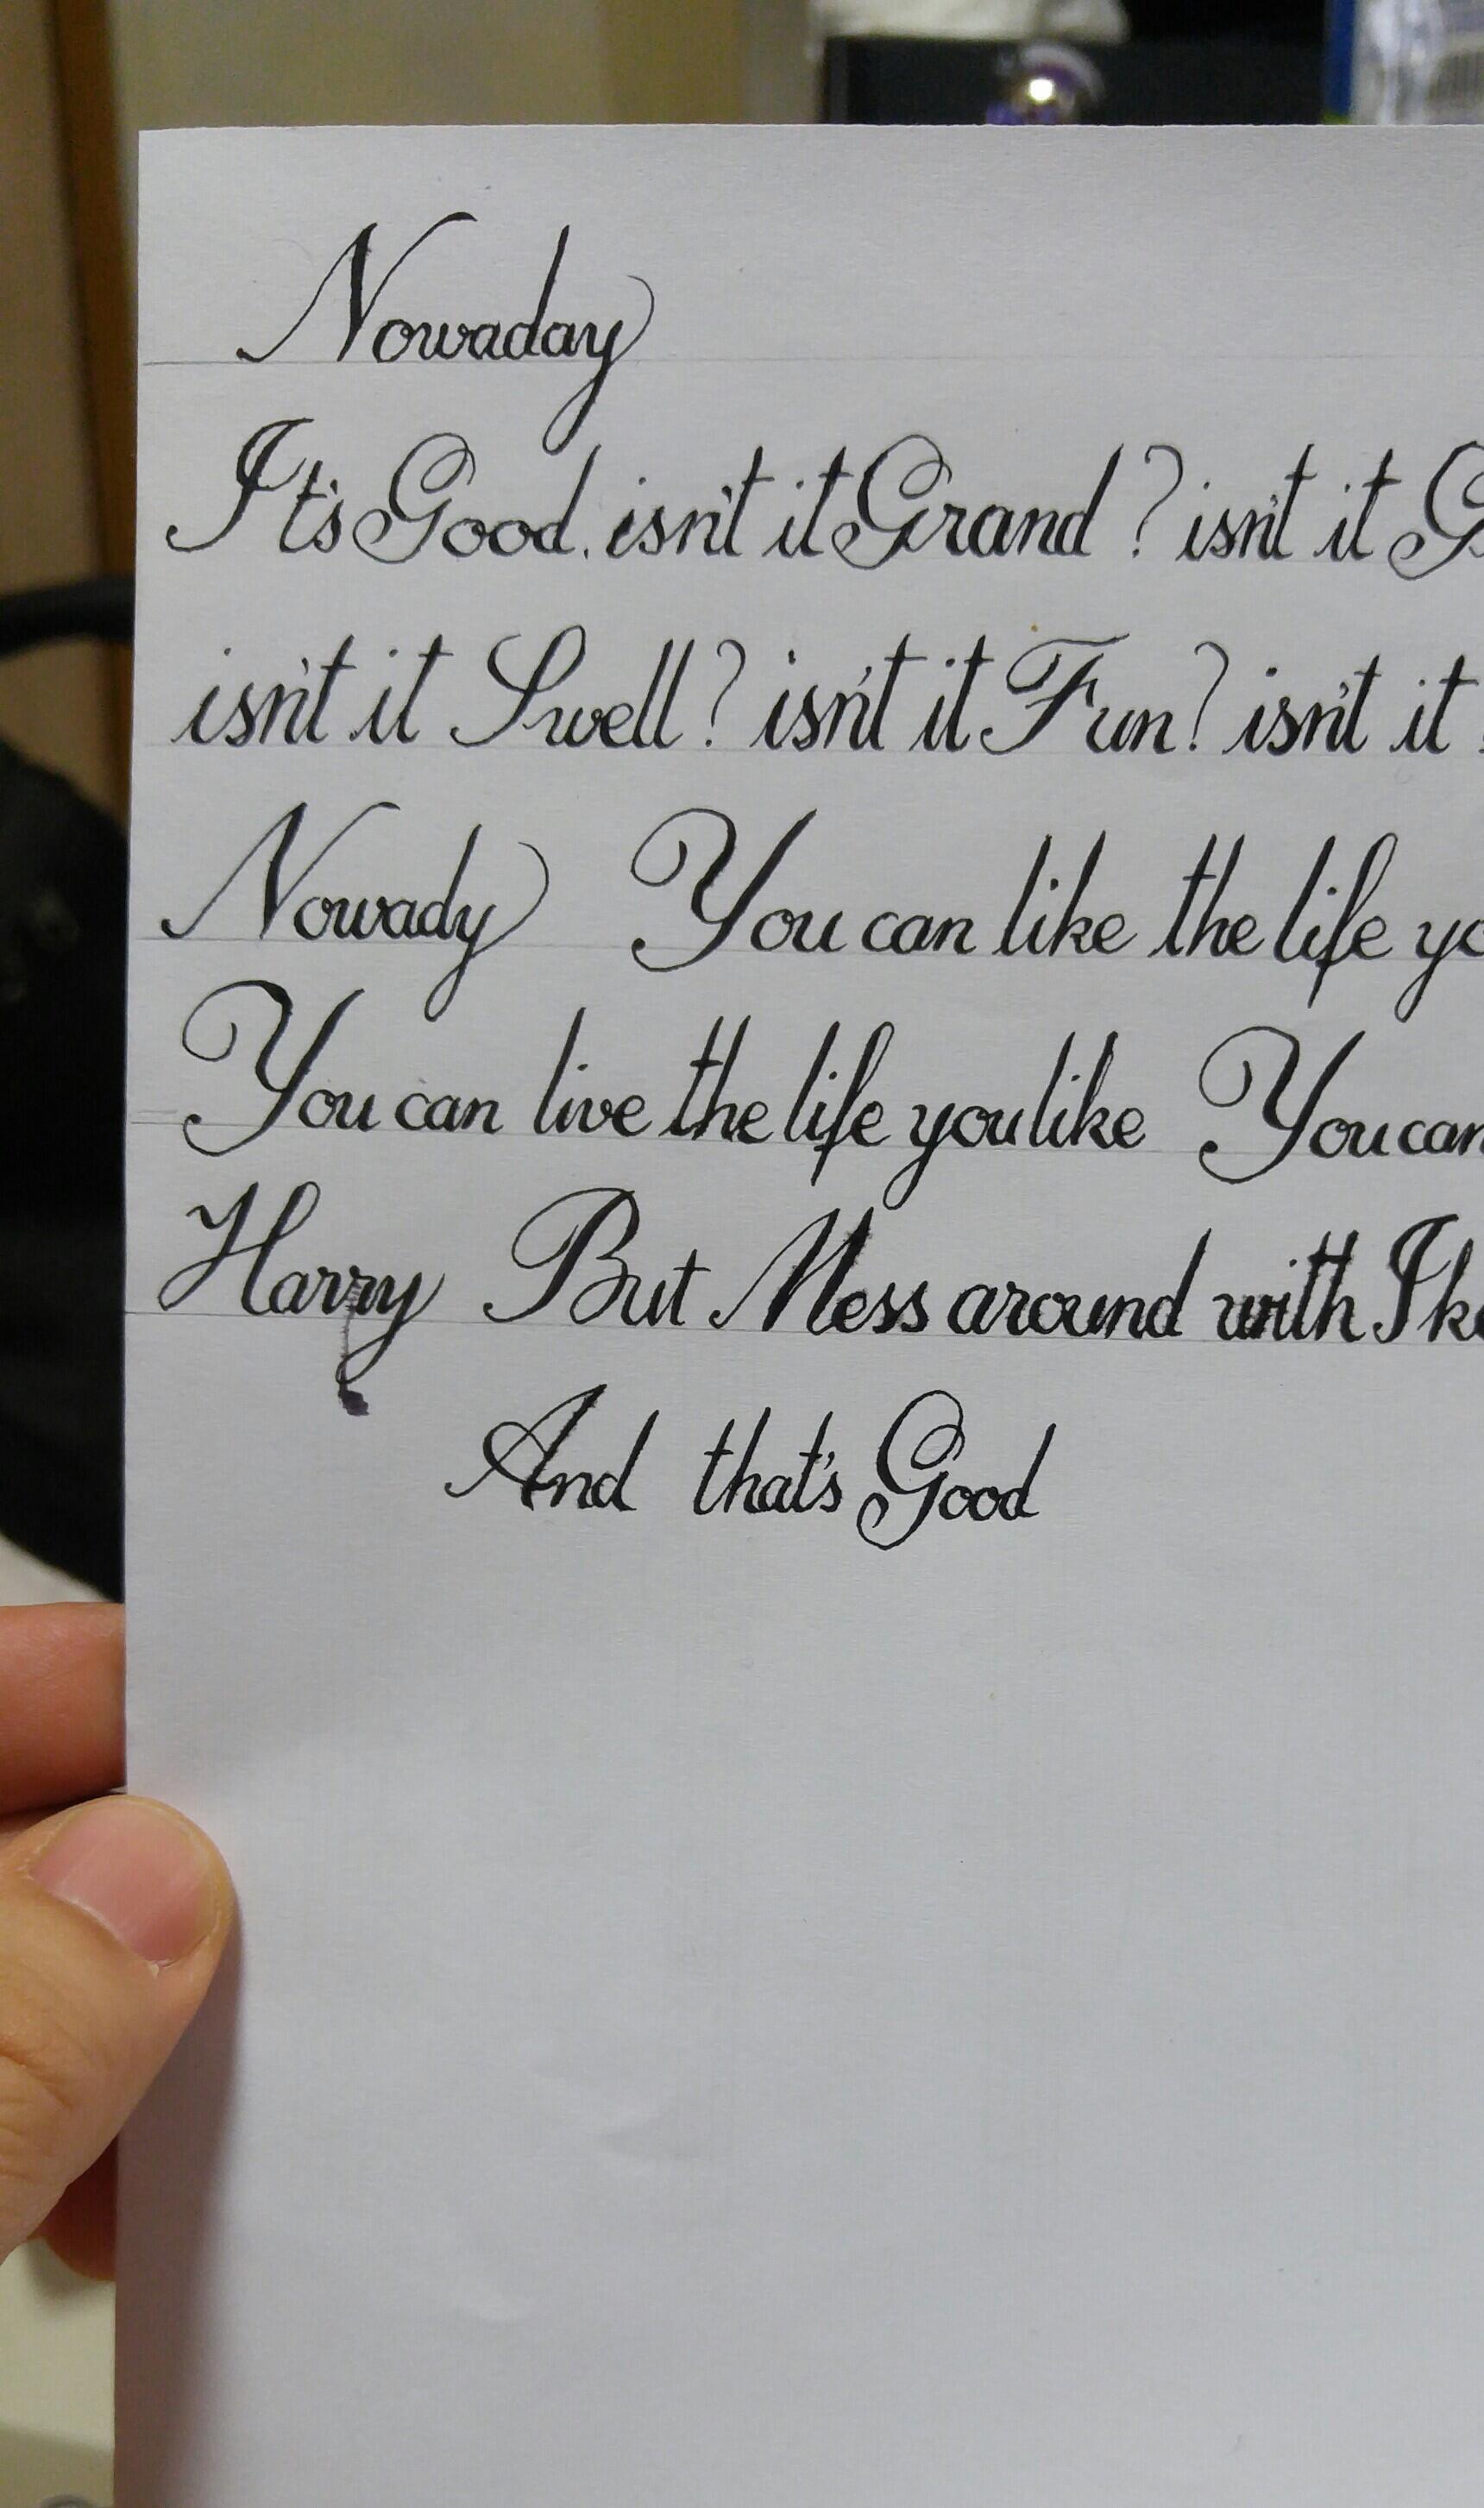 Nowaday
It's Good. isn't it Grand? isn't it G
isn't it Swell? isn't it Fun? isn't it
Nowady You can like the life yo
You can live the life you like You can
Harry But Mess around with Ike
And that's Good